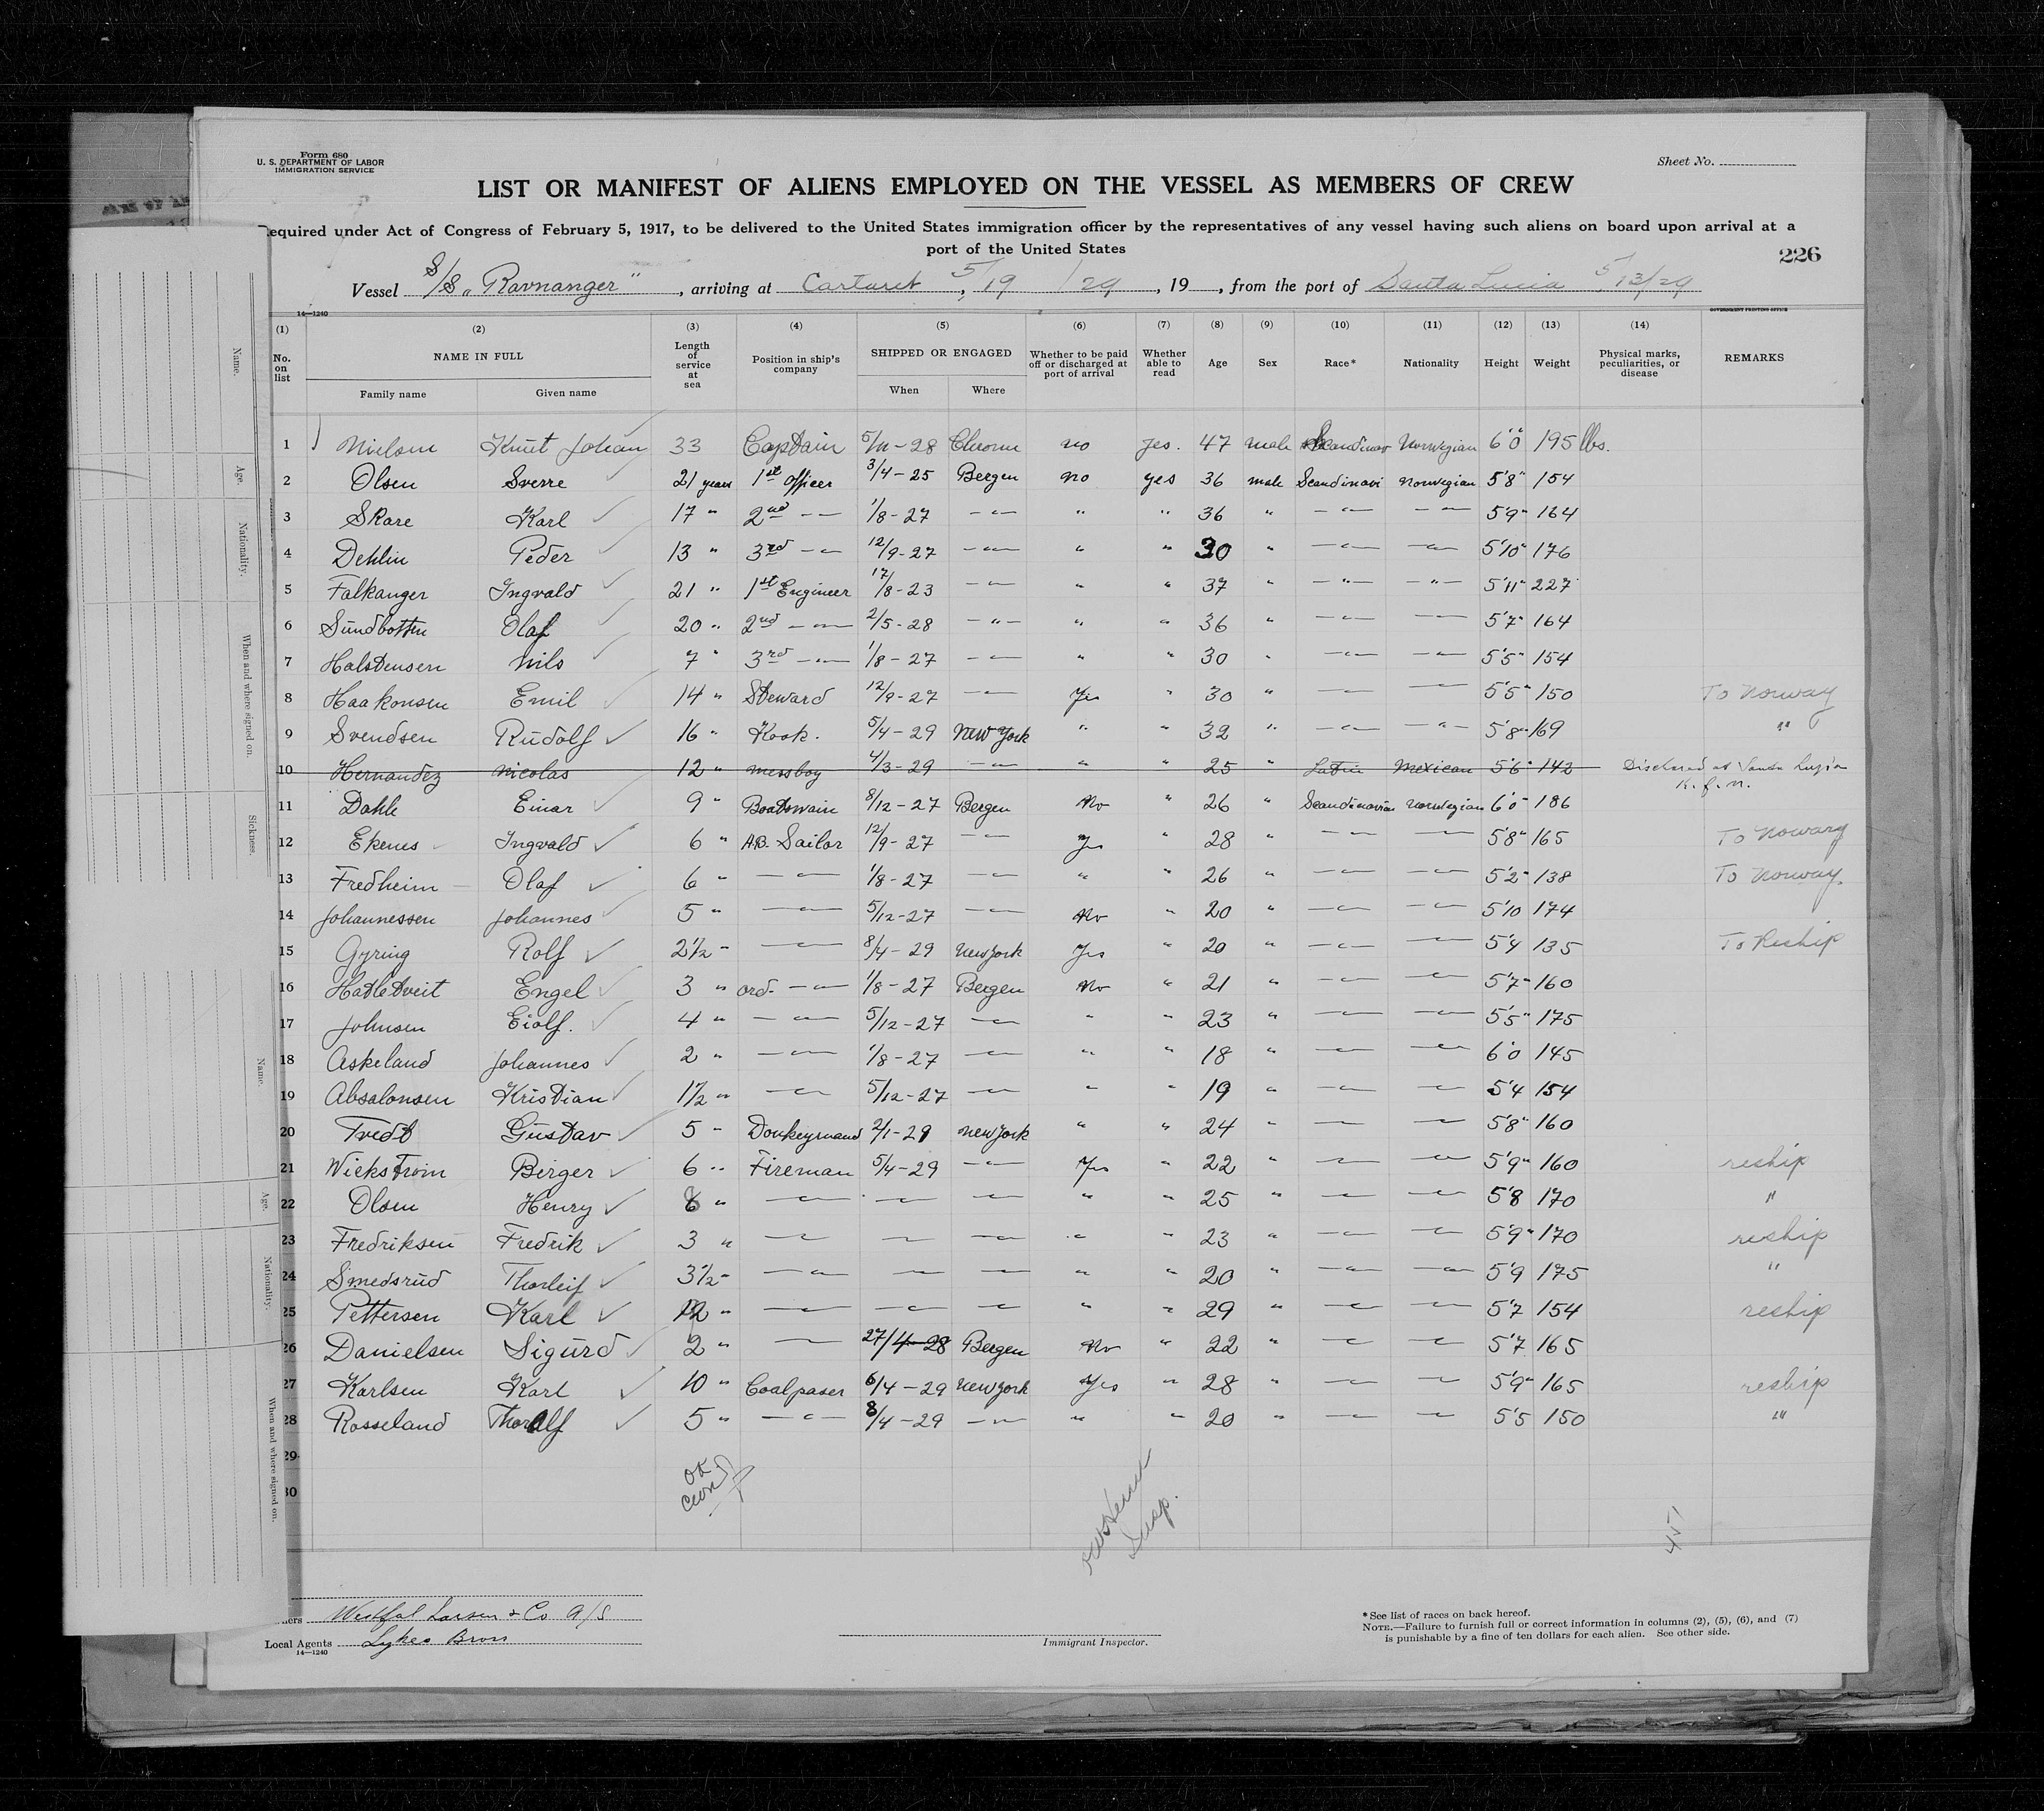 Form 680
U. S. DEPARTMENT OF LABOR
IMMIGRATION SERVICE
Sheet No.
LIST OR MANIFEST OF ALIENS EMPLOYED ON THE VESSEL AS MEMBERS OF CREW
Required under Act of Congress of February 5, 1917, to be delivered to the United States immigration officer by the representatives of any vessel having such aliens on board upon arrival at a
port of the United States
226
Vessel S/S „Ravnanger", arriving at Carteret, 5/19/29, 19, from the port of Santa Lucia 5/13/29
14—1240
GOVERNMENT PRINTING OFFICE
(1) (2) (3) (4) (5) (6) (7) (8) (9) (10) (11) (12) (13) (14)
No. on list NAME IN FULL Length of service at sea Position in ship's company SHIPPED OR ENGAGED Whether to be paid off or discharged at port of arrival Whether able to read Age Sex Race* Nationality Height Weight Physical marks, peculiarities, or disease REMARKS
Family name Given name When Where
1 Nielsen Knut Johan 33 Captain 5/11-28 no yes. 47 male Scandinav Norwegian 6'0" 195 lbs.
2 Olsen Sverre 21 years 1st Officer 3/4-25 Bergen no yes 36 male Scandinavi Norwegian 5'8" 154
3 Skare Karl 17 " 2nd -"- 1/8-27 -"- " " 36 " -"- -"- 5'9" 164
4 Dehlin Peder 13 " 3rd -"- 12/9-27 -"- " " 30 " -"- -"- 5'10" 176
5 Falkanger Ingvald 21 " 1st Engineer 17/8-23 -"- " " 37 " -"- -"- 5'11" 227
6 Sundbotten Olaf 20 " 2nd -"- 2/5-28 -"- " " 36 " -"- -"- 5'7" 164
7 Halstensen Nils 7 " 3rd -"- 1/8-27 -"- " " 30 " -"- -"- 5'5" 154
8 Haakonsen Emil 14 " Steward 12/9-27 -"- Yes " 30 " -"- -"- 5'5" 150 To Norway
9 Svendsen Rudolf 16 " Kook. 5/4-29 New York " " 32 " -"- -"- 5'8" 169 "
10 Hernandez Nicolas 12 " messboy 4/3-29 -"- " " 25 " Latin Mexican 5'6" 142
11 Dahle Einar 9 " Boatswain 8/12-27 Bergen No " 26 " Scandinavian Norwegian 6'0" 186
12 Ekenes Ingvald 6 " A.B. Sailor 12/9-27 -"- Yes " 28 " -"- -"- 5'8" 165 To Nowary
13 Fredheim Olaf 6 " -"- 1/8-27 -"- " " 26 " -"- -"- 5'2" 138 To Norway
14 Johannessen Johannes 5 " -"- 5/12-27 -"- No " 20 " -"- -"- 5'10 174
15 Gyring Rolf 2 1/2 " -"- 8/4-29 New York Yes " 20 " -"- -"- 5'4 135 To Reship
16 Hatletveit Engel 3 " ord. -"- 1/8-27 Bergen No " 21 " -"- -"- 5'7" 160
17 Johnsen Eiolf. 4 " -"- 5/12-27 -"- " " 23 " -"- -"- 5'5" 175
18 Askeland Johannes 2 " -"- 1/8-27 -"- " " 18 " -"- -"- 6'0 145
19 Absalonsen Kristian 1 1/2 " -"- 5/12-27 -"- " " 19 " -"- -"- 5'4 154
20 Tvedt Gustav 5 " Donkeymand 2/1-29 New York " " 24 " -"- -"- 5'8" 160
21 Wickstrom Birger 6 " Fireman 5/4-29 -"- Yes " 22 " -"- -"- 5'9" 160 reship
22 Olsen Henry 8 " -"- -"- -"- " " 25 " -"- -"- 5'8 170 "
23 Fredriksen Fredrik 3 " -"- -"- -"- " " 23 " -"- -"- 5'9" 170 reship
24 Smedsrud Thorleif 3 1/2 " -"- -"- -"- " " 20 " -"- -"- 5'9 175 "
25 Pettersen Karl 12 " -"- -"- -"- " " 29 " -"- -"- 5'7 154 reship
26 Danielsen Sigurd 2 " -"- 27/4-28 Bergen No " 22 " -"- -"- 5'7 165
27 Karlsen Karl 10 " Coalpaser 6/4-29 New York Yes " 28 " -"- -"- 5'9" 165 reship
28 Rosseland Thoralf 5 " -"- 8/4-29 -"- " " 20 " -"- -"- 5'5 150 "
29
30
451
Westfal Larsen & Co A/S
Local Agents Lykes Bros
14—1240
Immigrant Inspector.
*See list of races on back hereof.
NOTE.—Failure to furnish full or correct information in columns (2), (5), (6), and (7)
is punishable by a fine of ten dollars for each alien. See other side.
Name.
Age.
Nationality.
When and where signed on.
Sickness.
Name.
Age.
Nationality.
When and where signed on.